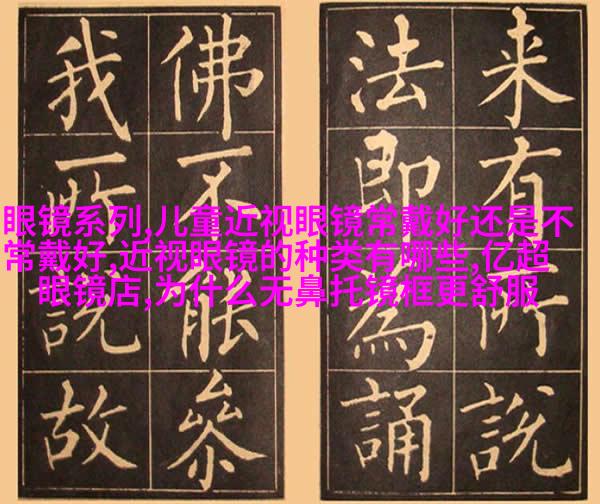 来有所說
法即為誦
佛不能參
我所說故
眼镜系列,儿童近视眼镜常戴好还是不
常戴好,近视眼镜的种类有哪些,亿超
眼镜店,为什么无鼻托镜框更舒服